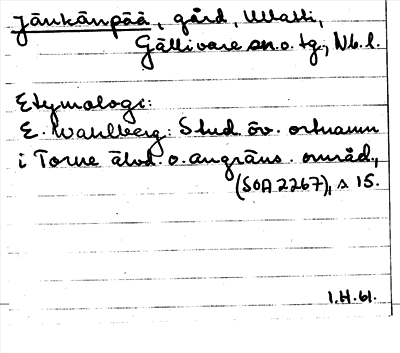 Jänkänpää, gård, Ullatti,
Gällivare sn. o. tg., Nb. l.
Etymologi:
E. Wahlberg: Stud. öv. ortnamn
i Torne älvd. o. angräns. områd.,
(SOA 2267), s 15.
I.H. 61.